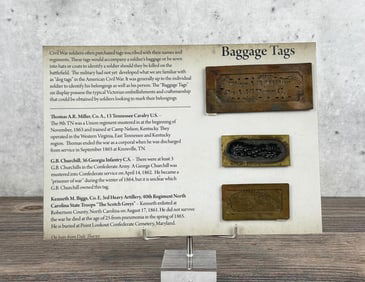 Civil War soldiers often purchased tags inscribed with their names and
regiments. These tags would accompany a soldier's baggage or be sewn
into hats or coats to identify a soldier should they be killed on the
battlefield. The military had not yet developed what we are familiar with
as "dog tags" in the American Civil War. It was generally up to the individual
soldier to identify his belongings as well as his person. The "Baggage Tags"
on display possess the typical Victorian embellishments and craftsmanship
that could be obtained by soldiers looking to mark their belongings.
Baggage Tags
Thomas A.R. Miller, Co. A., 13 Tennessee Cavalry U.S. –
The 9th TN was a Union regiment mustered in at the beginning of
November, 1863 and trained at Camp Nelson, Kentucky. They
operated in the Western Virginia, East Tennessee and Kentucky
region. Thomas ended the war as a corporal when he was discharged
from service in September 1865 at Knoxville, TN.
G.B. Churchill, 36 Georgia Infantry C.S. – There were at least 3
G.B. Churchills in the Confederate Army. A George Churchill was
mustered into Confederate service on April 14, 1862. He became a
"prisoner of war" during the winter of 1864, but it is unclear which
G.B. Churchill owned this tag.
Kenneth M. Biggs, Co. E, 3rd Heavy Artillery, 40th Regiment North
Carolina State Troops "The Scotch Greys" – Kenneth enlisted at
Robertson County, North Carolina on August 17, 1861. He did not survive
the war he died at the age of 25 from pneumonia in the spring of 1865.
He is buried at Point Lookout Confederate Cemetery, Maryland.
On loan from Dale